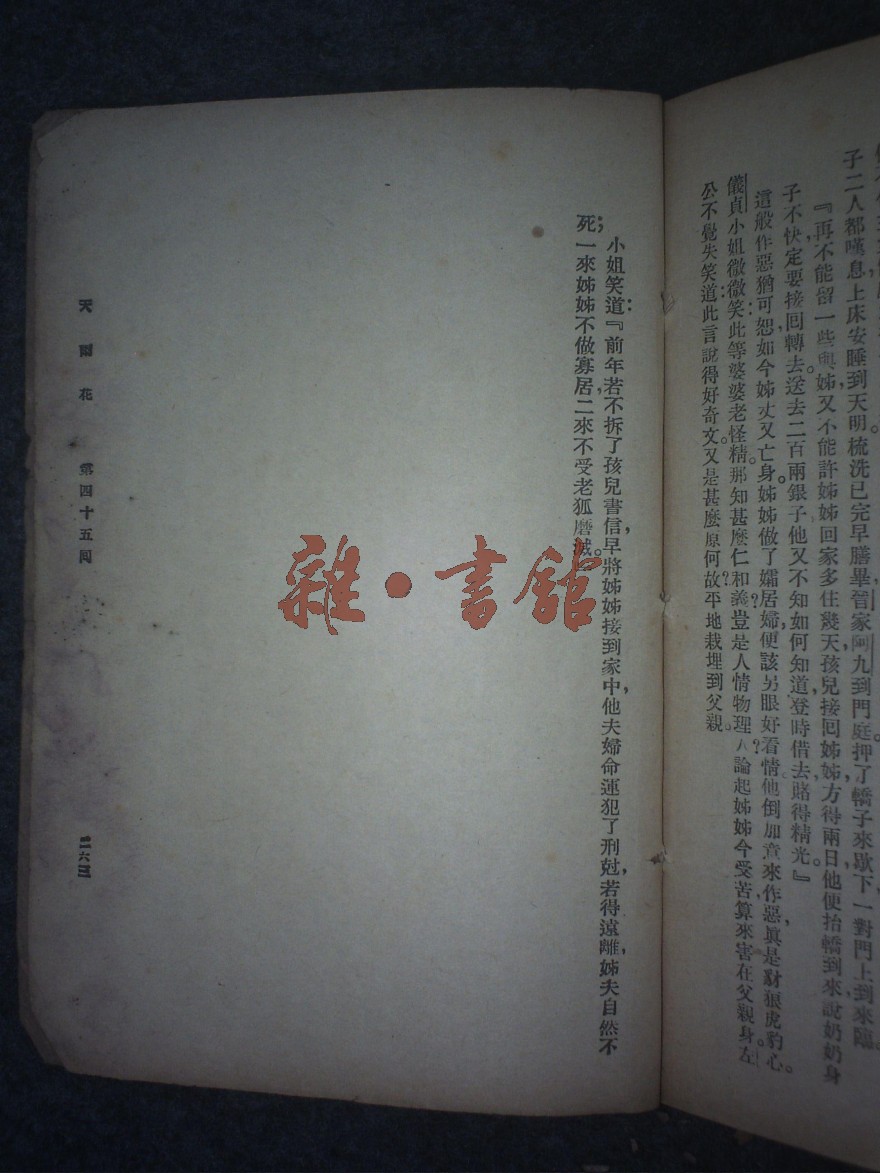 子二人都嘆息上床安睡到天明。梳洗已完早膳畢,晉家阿九到門庭。押了轎子來歇下,一對門上到來臨。
『再不能留一些與姊,又不能許姊姊回家多住幾天,孩兒接囘姊姊方得兩日,他便抬轎到來,說奶奶身
子不快,定要接囘轉去。送去二百兩銀子,他又不知如何知道,登時借去,賭得精光。』
這般作惡猶可恕,如今姊丈又亡身。姊姊做了孀居婦,便該另眼好看情。他倒加意來作惡,眞是豺狼虎豹心。
儀貞小姐微微笑:此等婆婆老怪精。那知甚麽仁和義?豈是人情物理人?論起姊姊今受苦,算來害在父親身。左
公不覺失笑道:此言說得好奇文。又是甚麽原何故?平地栽埋到父親。
小姐笑道:『前年若不拆了孩兒書信,早將姊姊接到家中,他夫婦命運犯了刑尅,若得遠離,姊夫自然不
死;一來姊姊不做寡居,二來不受老狐磨滅。
天雨花 第四十五囘 二六三
雜·書館